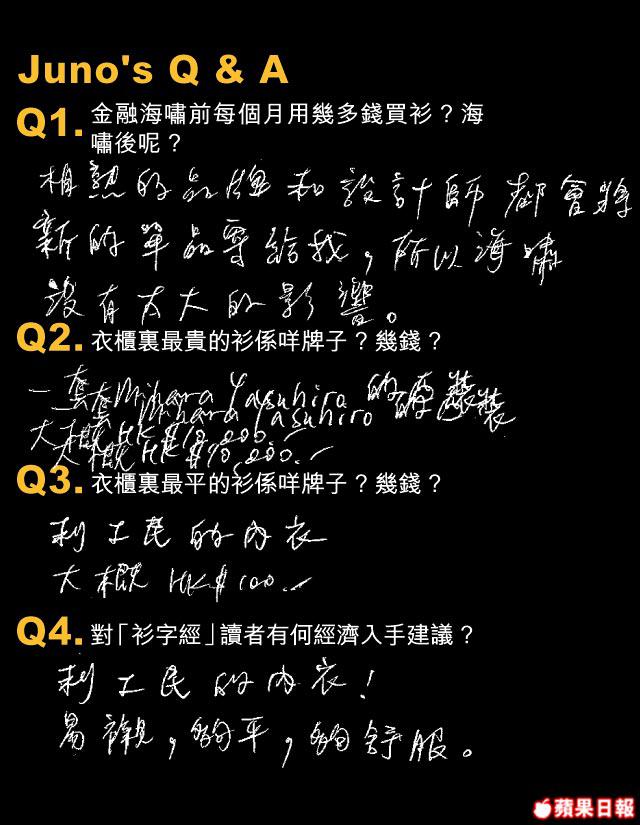 Juno's Q & A
Q1. 金融海嘯前每個月用幾多錢買衫？海
嘯後呢？
相熟的品牌和設計師都會將
新的單品寄給我，所以海嘯
沒有太大的影響。
Q2. 衣櫃裏最貴的衫係咩牌子？幾錢？
一套Mihara Yasuhiro的西裝
大概HK$10,000.
Q3. 衣櫃裏最平的衫係咩牌子？幾錢？
利工民的內衣
大概HK$100.
Q4. 對「衫字經」讀者有何經濟入手建議？
利工民的內衣！
易襯，夠平，夠舒服。
蘋果日報